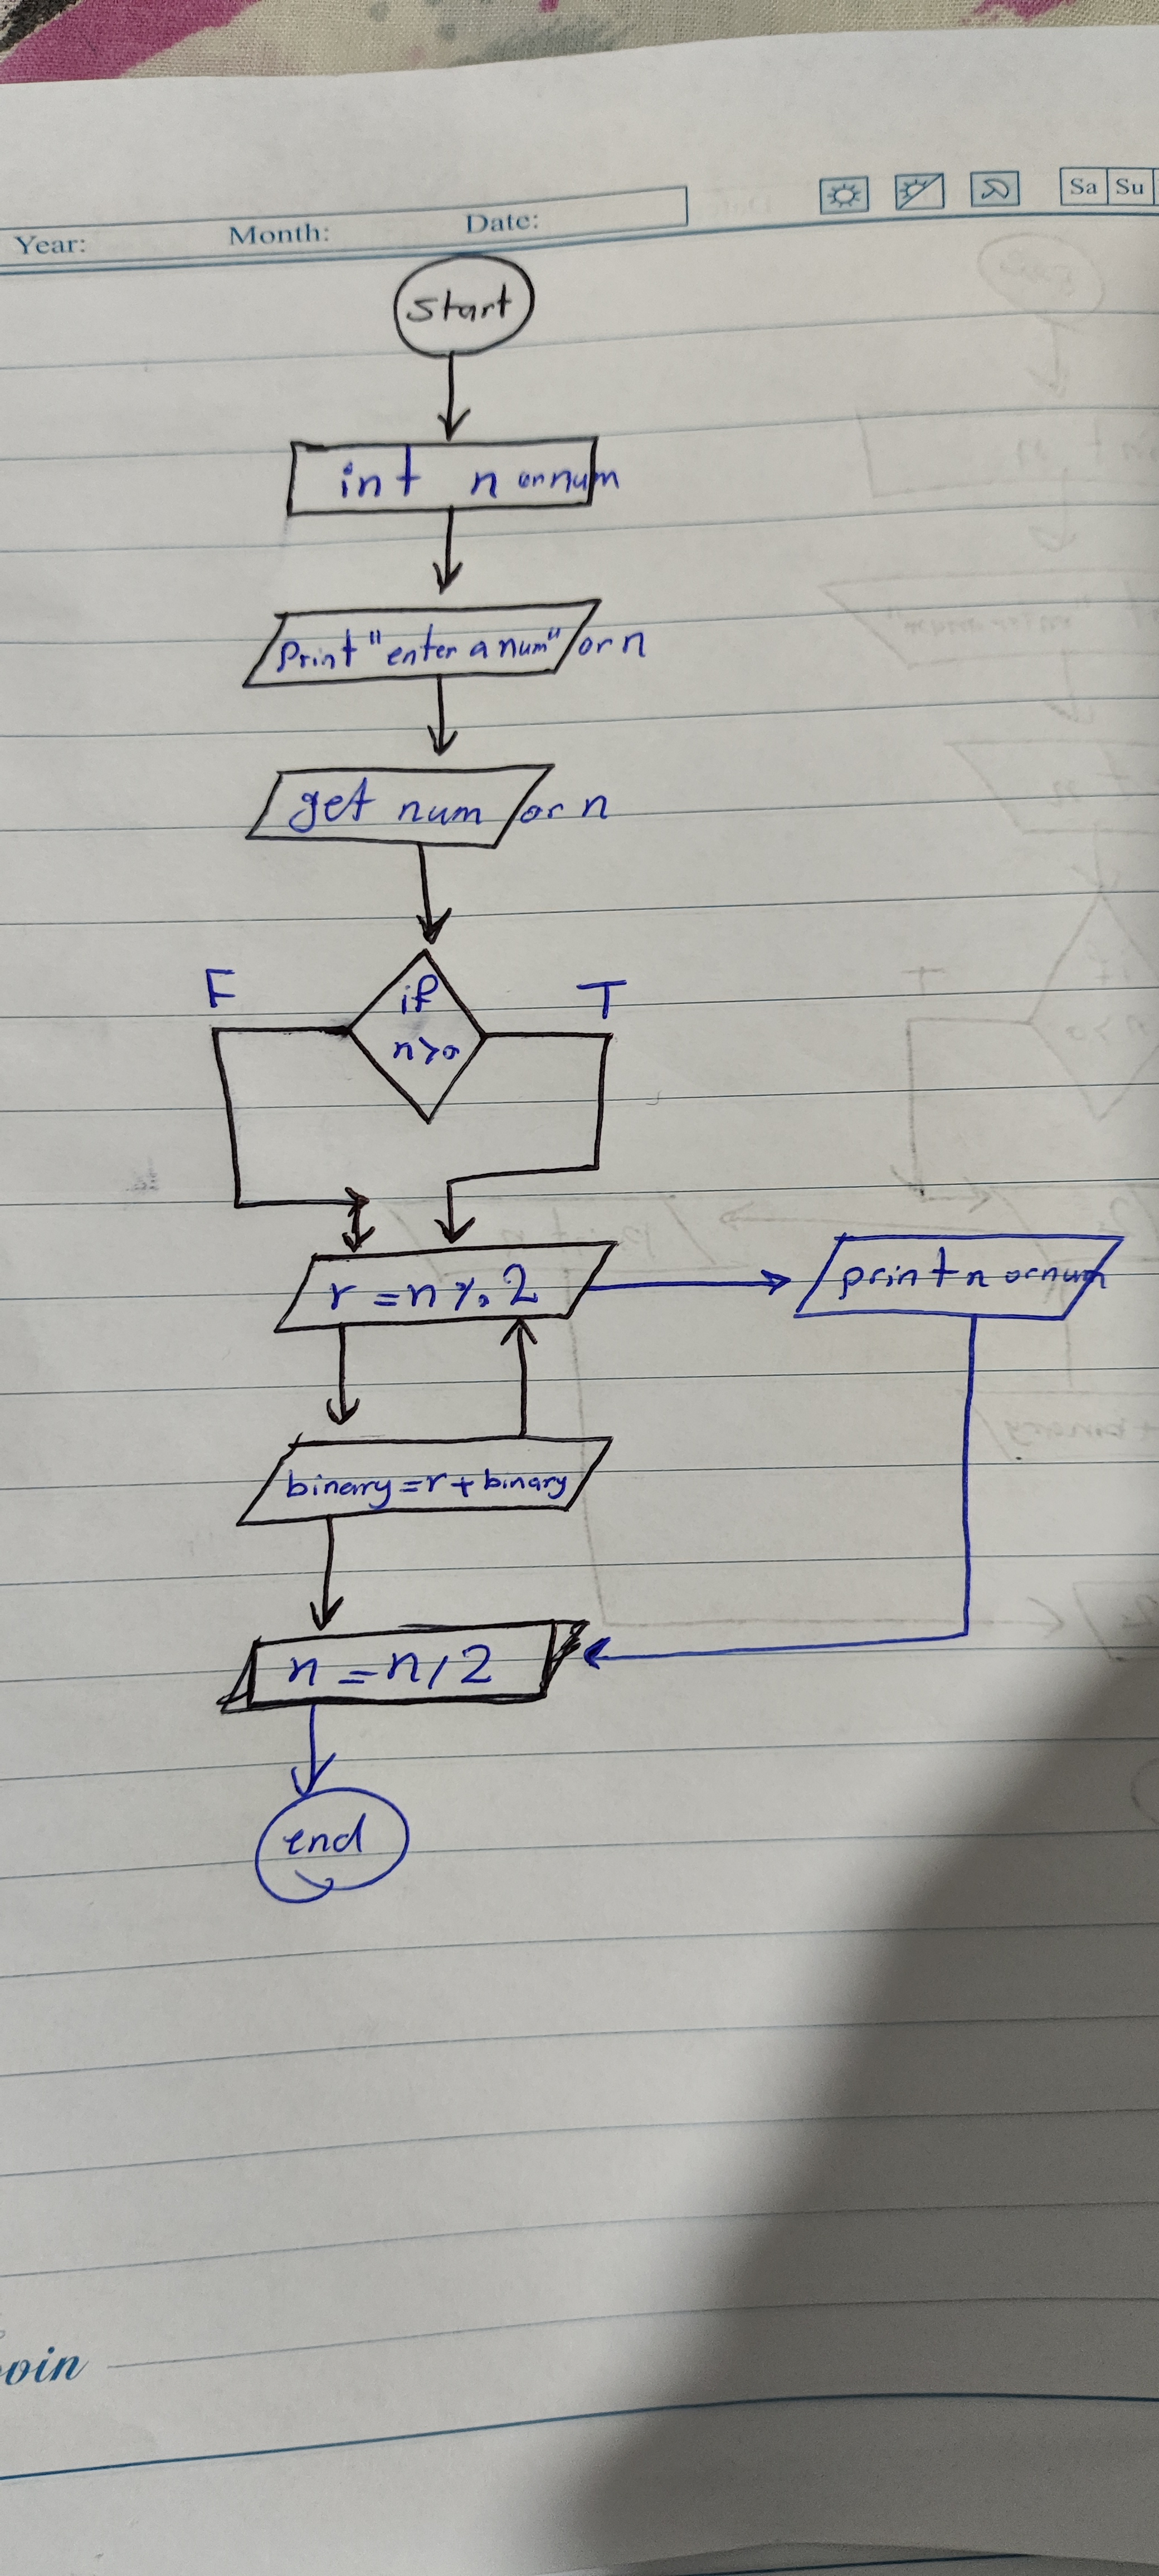 Year: Month: Date: Sa Su
start
int n or num
Print "enter a num" or n
get num or n
F T
if
n>0
r = n % 2 print n or num
binary = r + binary
n = n / 2
end